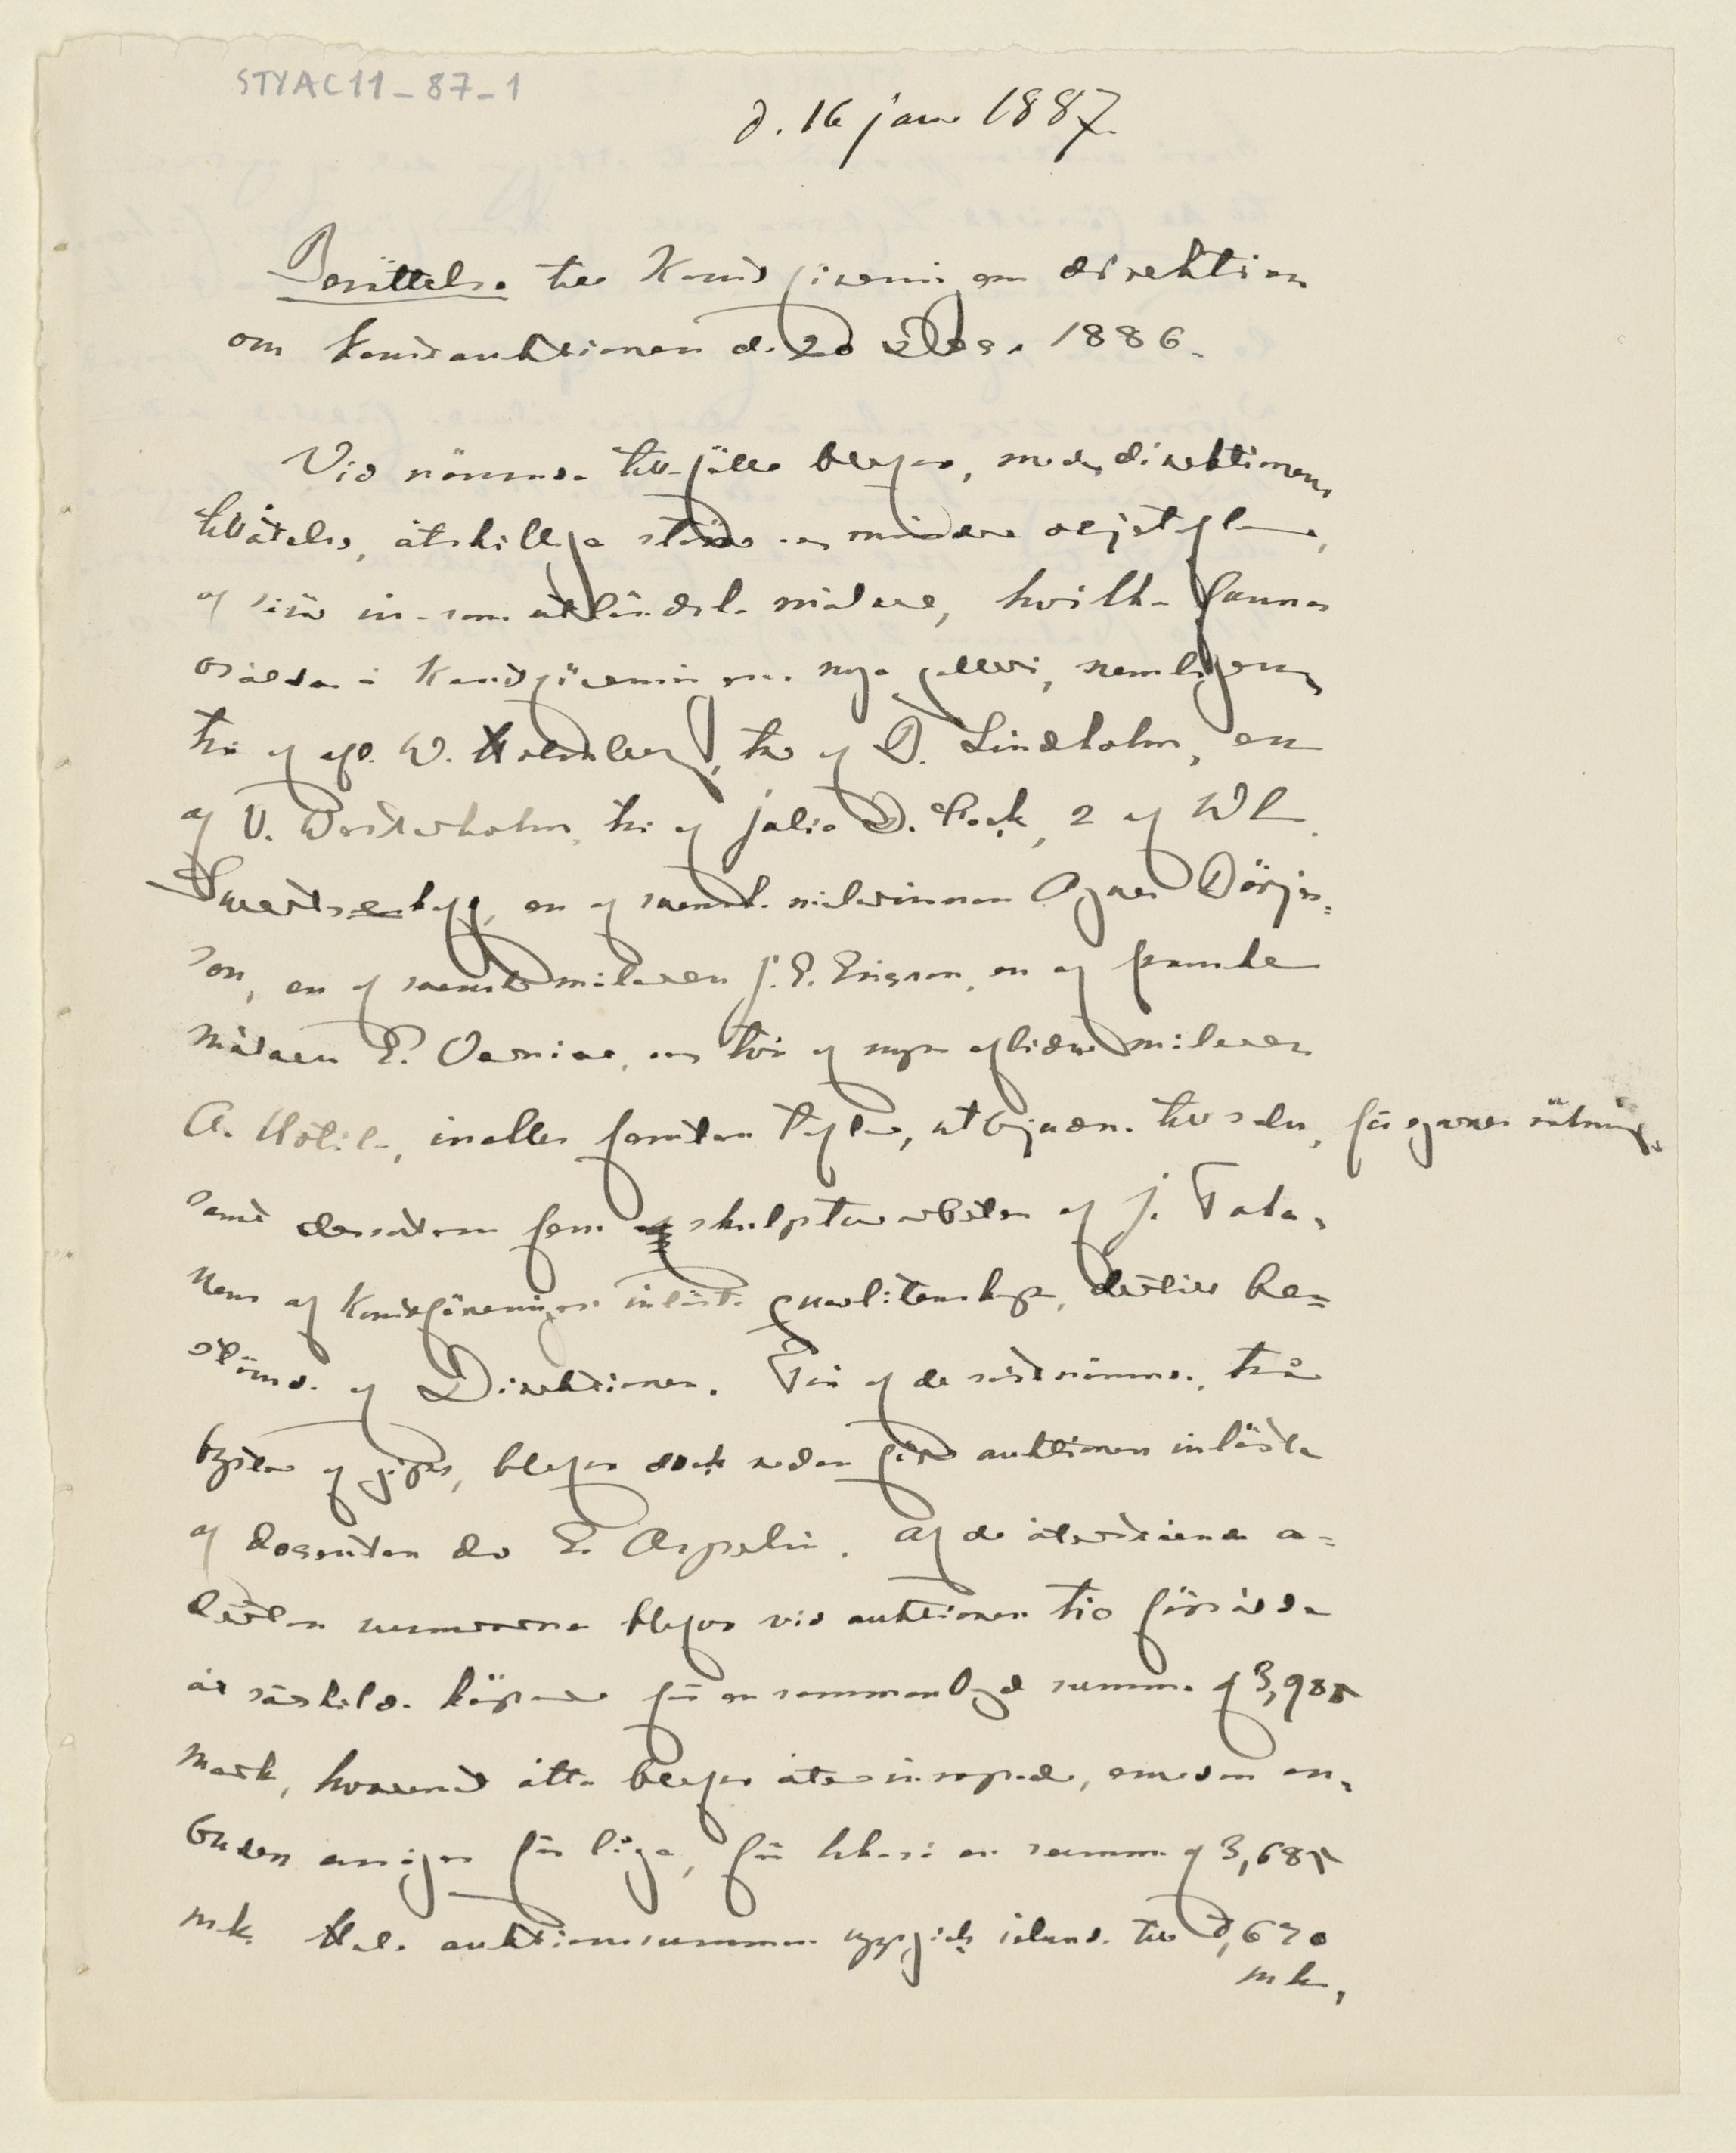 STYAC11-87-1
d. 16 jan 1887.
Berättelse till Konstföreningens direktion
om konstauktionen d. 20 Dec. 1886.
Vid nämnda tillfälle blefvo, med direktionens
tillåtelse, åtskilliga större och mindre oljetaflor,
af såväl in- som utländska målare, hvilka funnos
osålda i Konstföreningens nya galleri, nemligen
två af afl. W. Holmberg, två af B. Lindholm, en
af V. Westerholm, två af Julia S. Stock, 2 af Wl.
Swertschkoff, en af svenska målarinnan Agnes Börjes=
son, en af svenska målaren J. E. Ericson, en af franske
målaren E. Vernier, och två af nyss aflidne målaren
A. Kötilä, inalles fjorton taflor, utbjudna till salu, för egarnes räkning,
samt dessutom fem skulpturarbeten af J. Taka-
nens af Konstföreningen inlösta qvarlåtenskap, dertill be=
stämda af Direktionen. Två af de sistnämnda, två
byster af gips, blefvo dock redan före auktionen inlösta
af docenten dr E. Aspelin. Af de återstående a=
derton numrorna blefvo vid auktionen tio försålda
åt särskilda köpare för en sammanlagd summa af 3,985
mark, hvaremot åtta blefvo återinropade, emedan an-
buden ansågos för låga, för likaså en summa af 3,685
mk. Hela auktionssumman uppgick sålunda till 7,670
mk,